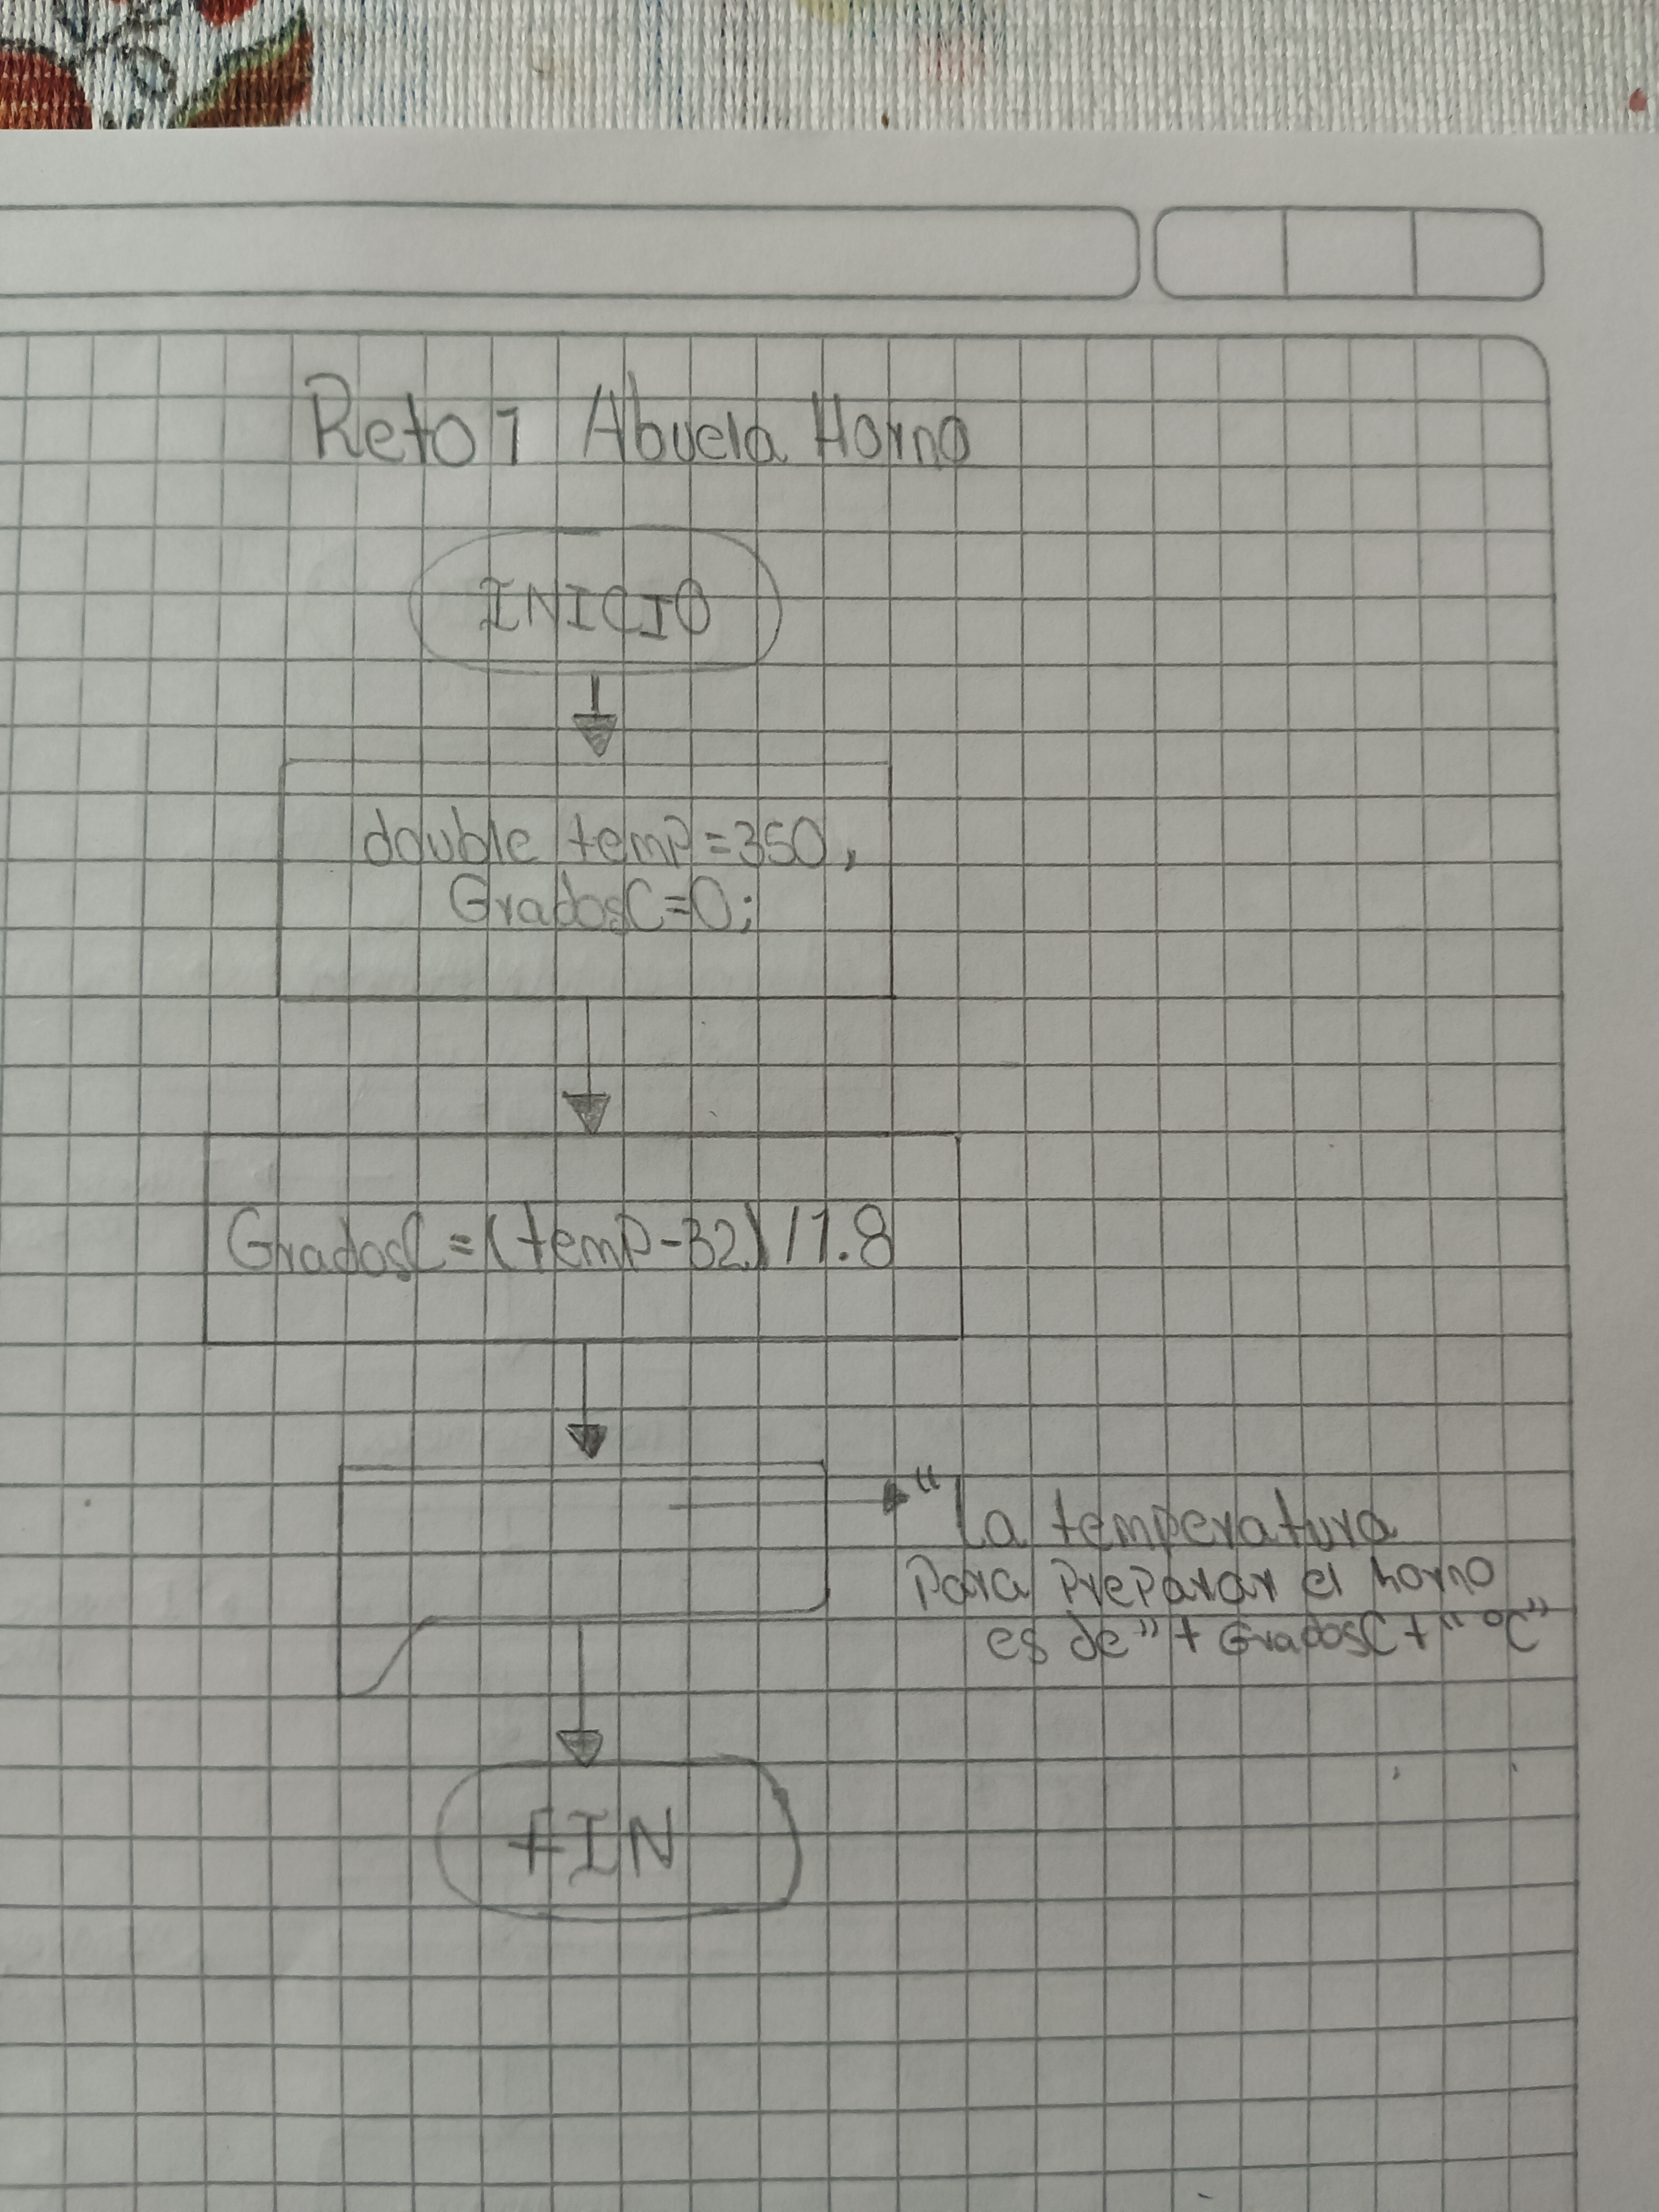 Reto 1 Abuela Horno
INICIO
double temp=350,
GradosC=0;
GradosC=(temp-32)/1.8
"La temperatura
Para Preparar el horno
es de"+GradosC+"°C"
FIN